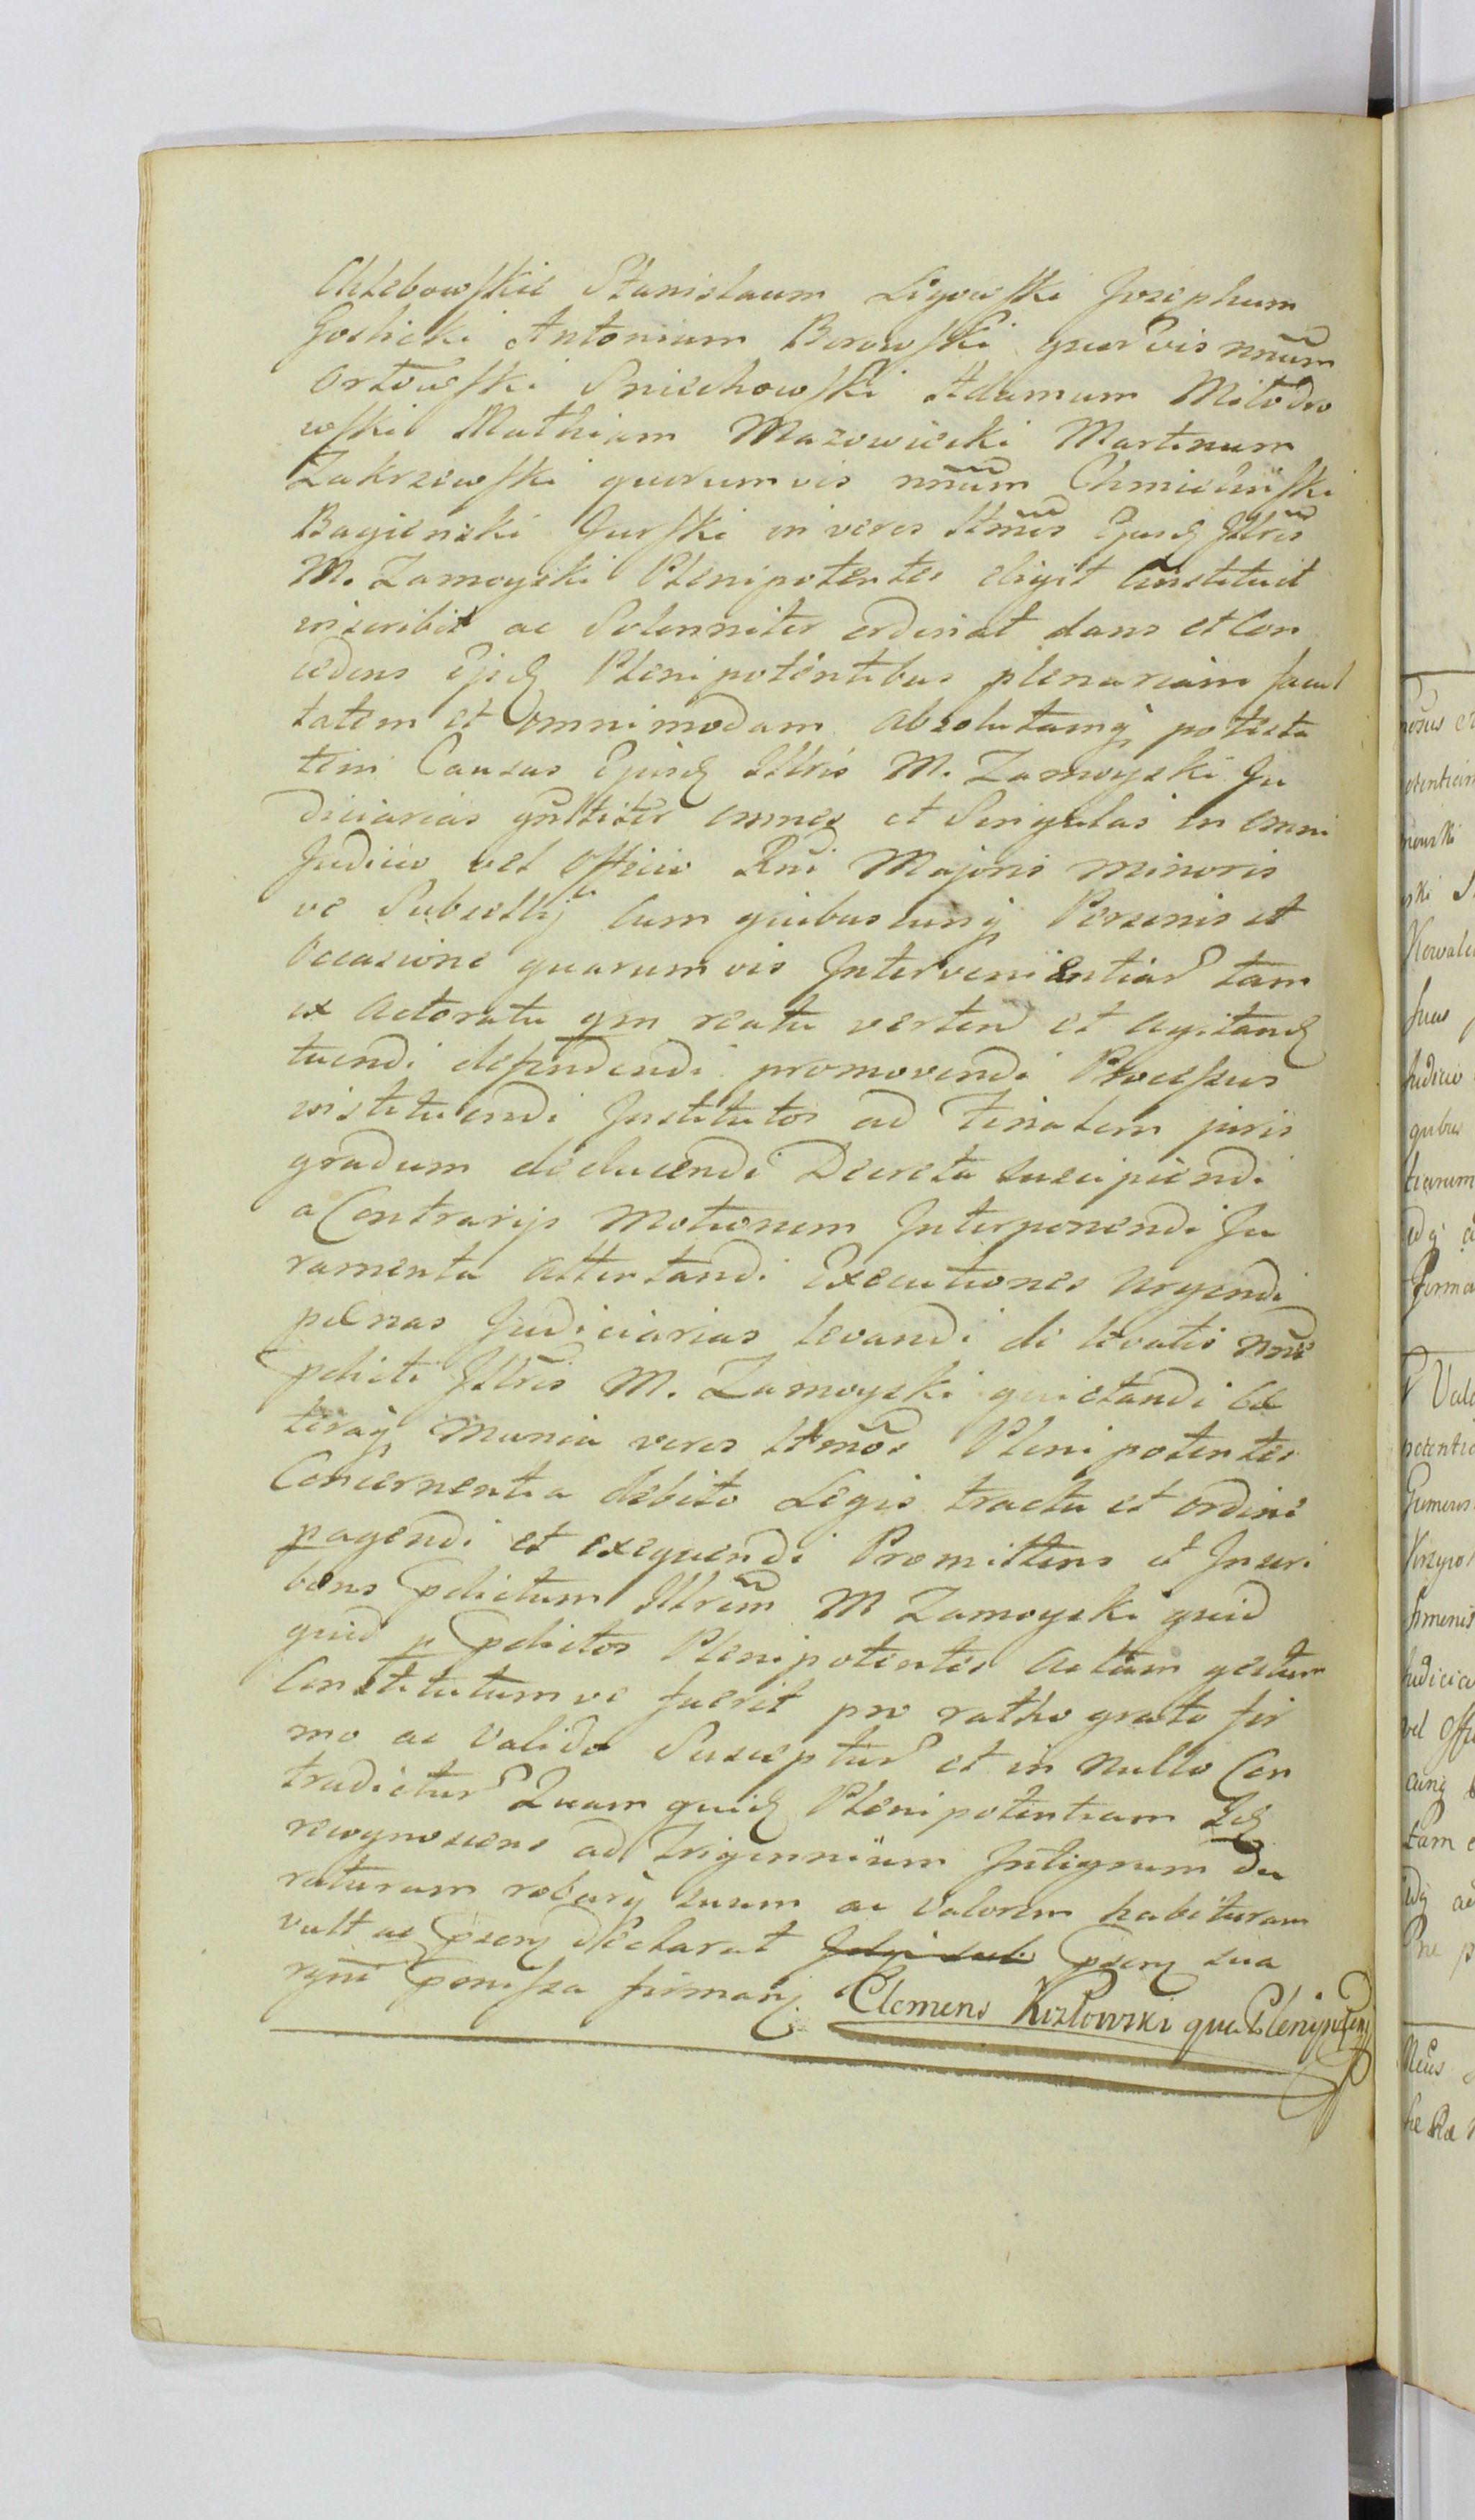 Chlebowskie Stanislaum Ligowski Josephum
Goslicki Antonium Borowski quorvis nnũm
Orłowski Sniechowski Adamum Miłodro
wski Mathiam Mazowiecki Martinum
Zakrzewski quorumvis nnũm Chmieliński
Bagienski Gurski in veros Ltmõs Ejusd Illris
M. Zamoyski Plenipotentes eligit Constituit
inscribit ac Solenniter ordinat dans et Con
cedens Ejsd Plenipotentibus plenariam facul
tatem et omnimodam absolutamq potesta
tem Causas Ejusd Illris M. Zamoyski Ju
diciarias gnĺliter omnes et Singulas in omni
Judicio vel Officio Rni Majoris minoris
ve Subsellij cum quibuscunq Personis et
Occasione quarumvis Intervenientiar tam
ex Actoratu qm reatu verten et agitand
tuendi defendendi promovendi Processus
instituendi Institutos ad Finalem juris
gradum deducendi Decreta suscipiendi
a Contrarijs Motionem Interponendi Ju
ramenta attestandi Executiones urgendi
pænas Judiciarias levandi de levatis nnẽ
pdicti Illris M. Zamoyski quietandi Cæ
teraq munia veros Ltmõs Plenipotentes
Concernentia debito Legis tractu et ordine
pagendi et exequendi Promittens et Inscri
bens pdictum Illrem M Zamoyski quid
quid p pdictos Plenipotentes Actum gestum
Constitutumve fuerit pro ratho grato fir
mo ac Valido Susceptur et in nullo Con
tradictur Quam quid Plenipotentiam Id
recognoscens ad Trigennium Integrum du
raturam roburq suum ac Valorem habituram
vult ac psenq declarat psenq sua
rgni
Clemens Kozłowski qua Plenipotens
nosus
Kowale
Judicio
qubus
tiarum
Forma
potentia
Judicia
vel Offi
cunq
tam